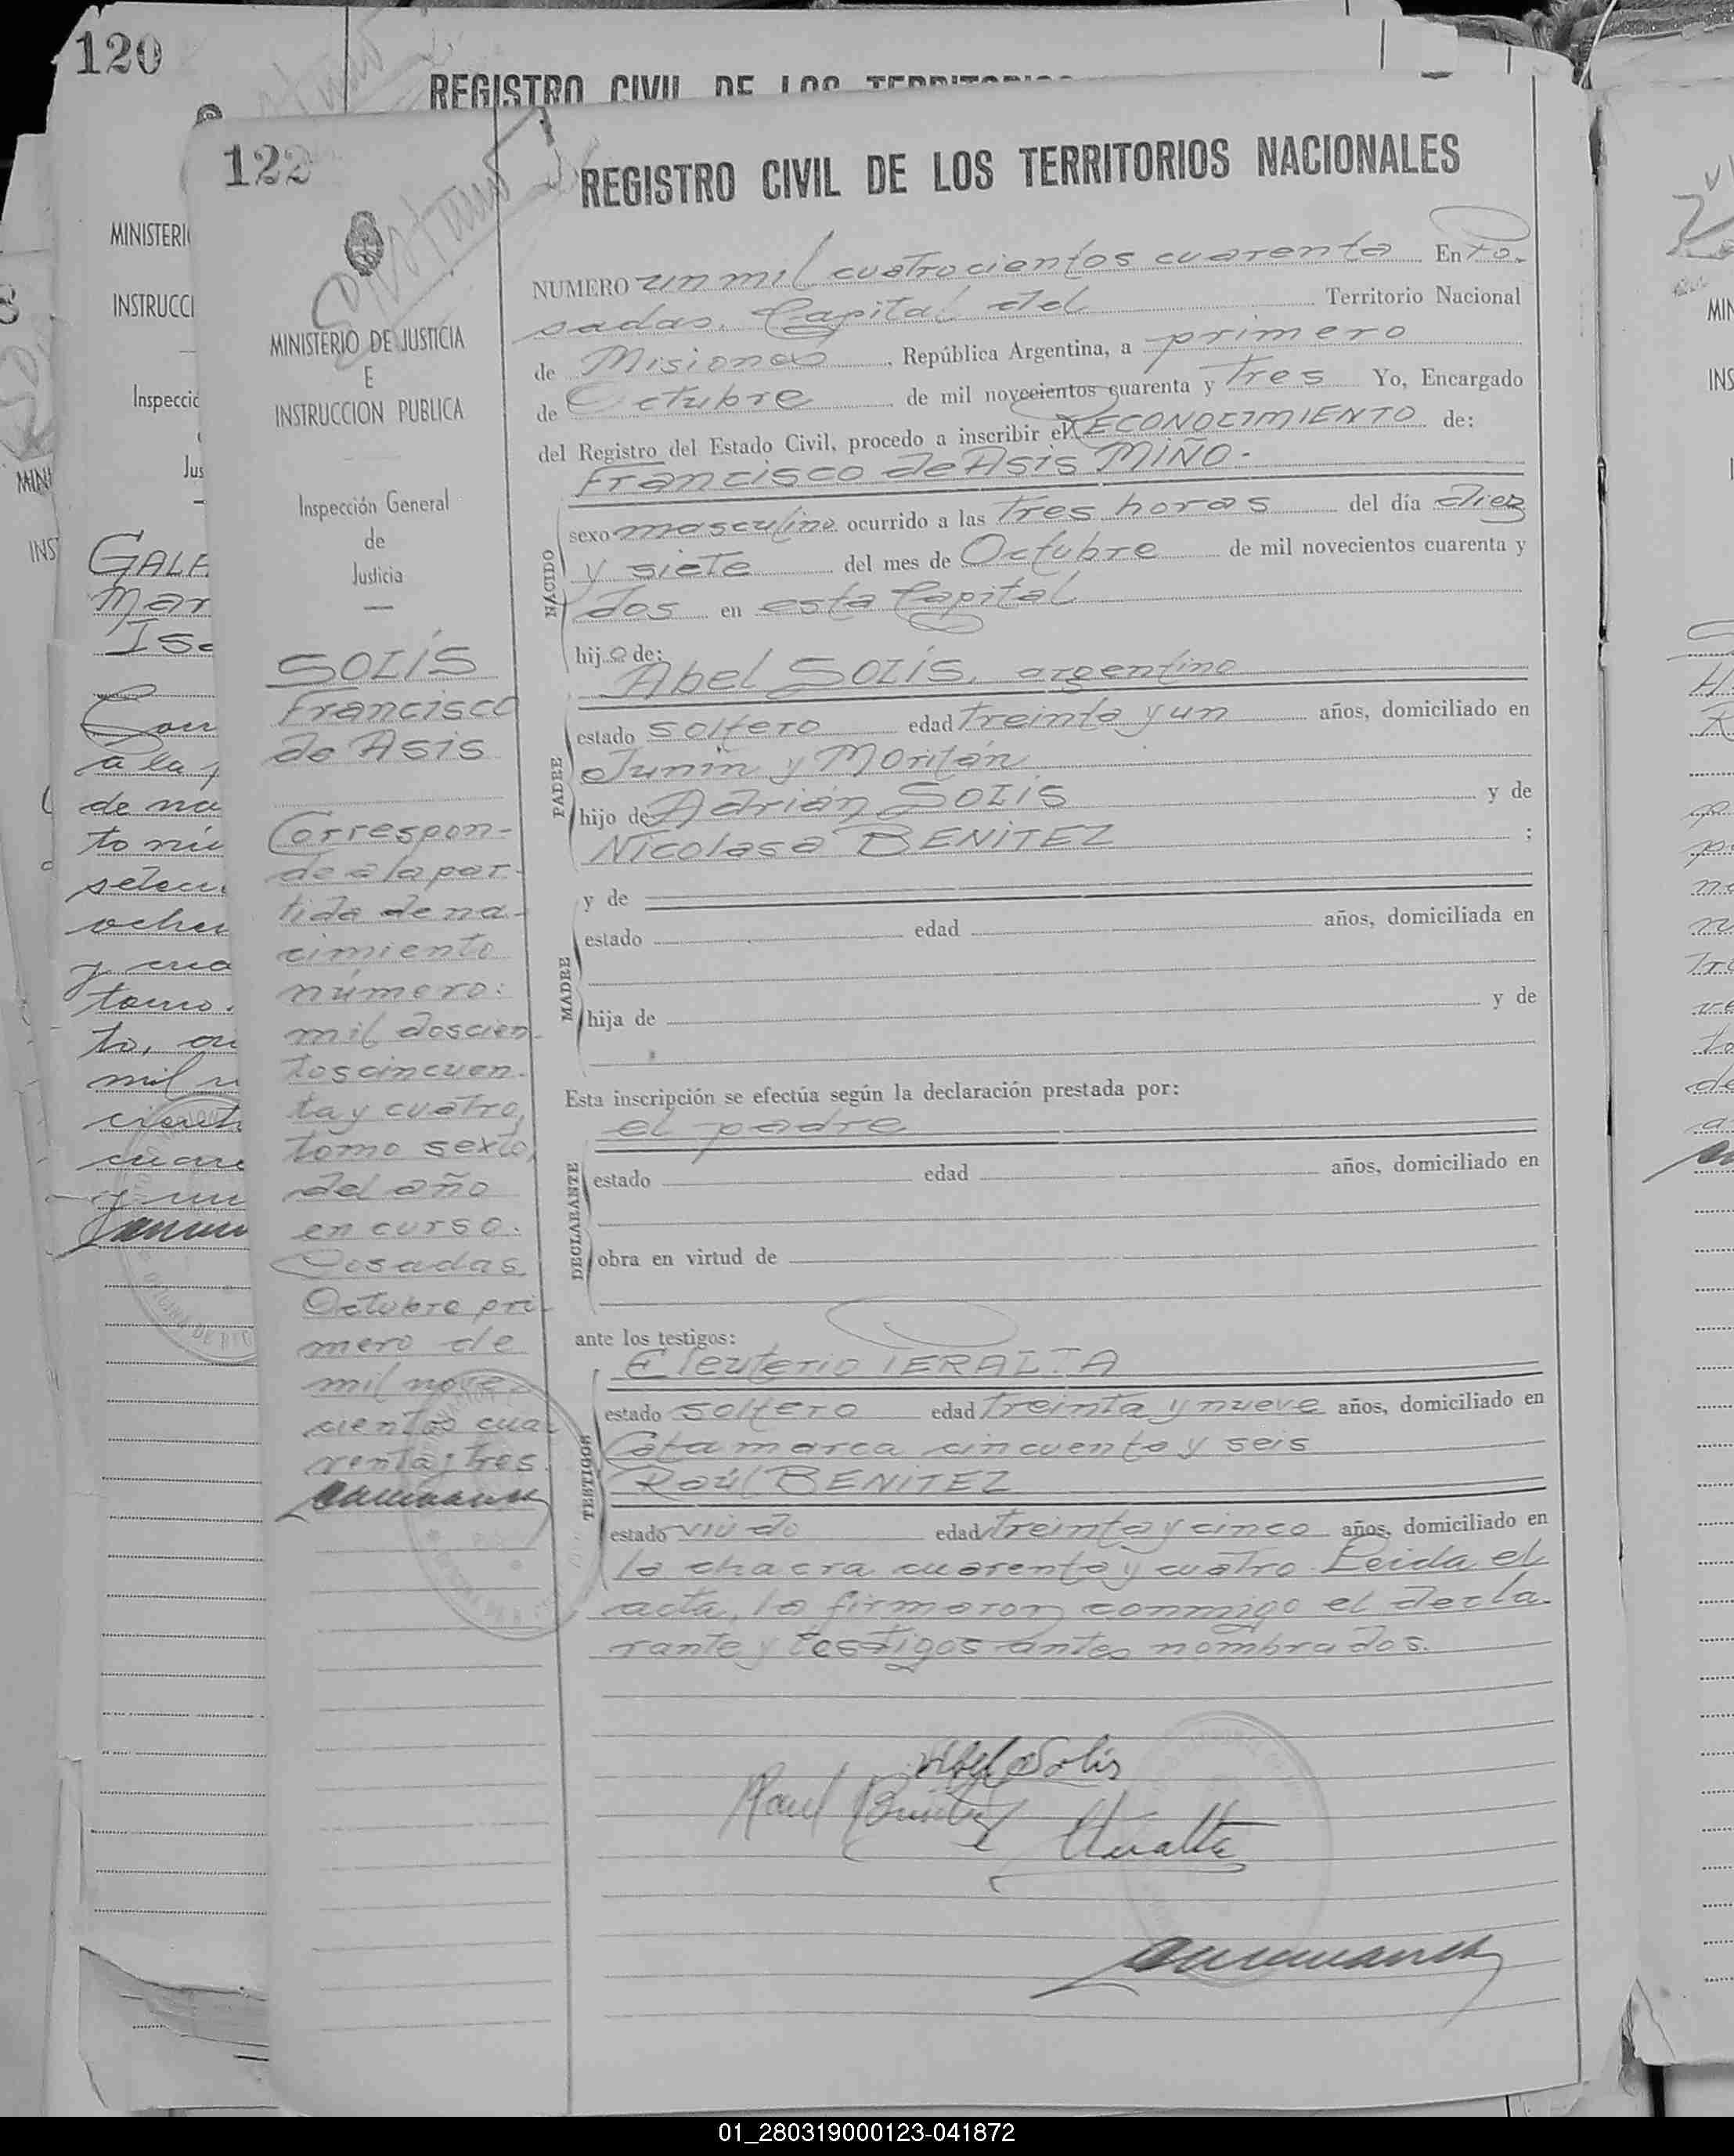 120
REGISTRO CIVIL DE LOS TERRITORIOS
122
REGISTRO CIVIL DE LOS TERRITORIOS NACIONALES
MINISTERIO DE JUSTICIA
E
INSTRUCCION PUBLICA
Inspección General
de
Justicia
SOLÍS
Francisco
de Asis
Correspon-
de a la par-
tida de na-
cimiento
número:
mil doscien-
tos cincuen-
ta y cuatro,
tomo sexto,
del año
en curso.
Posadas
Octubre pri-
mero de
mil nove-
cientos cua-
renta y tres.
NUMERO un mil cuatrocientos cuarenta En Po-
sadas, Capital del Territorio Nacional
de Misiones, República Argentina, a primero
de Octubre de mil novecientos cuarenta y tres Yo, Encargado
del Registro del Estado Civil, procedo a inscribir el RECONOCIMIENTO de:
Francisco de Asis MIÑO.-
NACIDO
sexo masculino ocurrido a las tres horas del día diez
y siete del mes de Octubre de mil novecientos cuarenta y
dos en esta Capital
hijo de:
Abel SOLÍS, argentino
PADRE
estado soltero edad treinta y un años, domiciliado en
Junin y Moritán
hijo de Adrián SOLÍS y de
Nicolasa BENITEZ ;
MADRE
y de
estado edad años, domiciliada en
hija de y de
Esta inscripción se efectúa según la declaración prestada por:
el padre
DECLARANTE
estado edad años, domiciliado en
obra en virtud de
ante los testigos:
TESTIGOS
Eleuterio PERALTA
estado soltero edad treinta y nueve años, domiciliado en
Catamarca cincuenta y seis
Raúl BENITEZ
estado viudo edad treinta y cinco años, domiciliado en
la chacra cuarenta y cuatro. Leida el
acta, la firmaron conmigo el decla-
rante y testigos antes nombrados.
Abel Solis
Raul Benitez
Peralta
MINISTERI
INSTRUCCI
Inspecció
Jus
GALE
Mar
Ise
a la p
de na
to nú
ocho
tomo
mil n
MIN
INS
MIN
INS
01_280319000123-041872